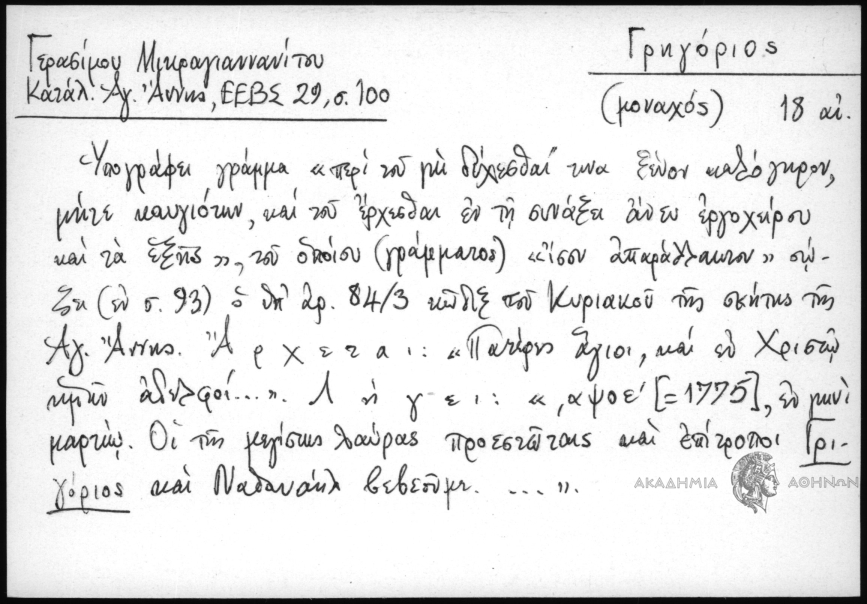 Γερασίμου Μικραγιαννανίτου
Κατάλ. Ἁγ. Ἄννης, ΕΕΒΣ 29, σ. 100
Γρηγόριος
(μοναχός) 18 αἰ.
Ὑπογράφει γράμμα «περὶ τοῦ μὴ δέχεσθαί τινα ξένον καλόγηρον,
μήτε καυγιότην, καὶ τοῦ ἔρχεσθαι ἐν τῇ συνάξει ἄνευ ἐργοχείρου
καὶ τὰ ἑξῆς», τοῦ ὁποίου (γράμματος) «ἴσον ἀπαράλλακτον» σῴ-
ζει (ἐν σ. 93) ὁ ὑπ' ἀρ. 84/3 κῶδιξ τοῦ Κυριακοῦ τῆς σκήτης τῆς
Ἁγ. Ἄννης. Ἄρχεται: «Πατέρες ἅγιοι, καὶ ἐν Χριστῷ
ἡμῶν ἀδελφοί...». Λήγει: «͵αψοε' [=1775], ἐν μηνὶ
μαρτίῳ. Οἱ τῆς μεγίστης Λαύρας προεστῶτες καὶ ἐπίτροποι Γρι-
γόριος καὶ Ναθαναὴλ βεβεοῦμε. ...».
ΑΚΑΔΗΜΙΑ ΑΘΗΝΩΝ